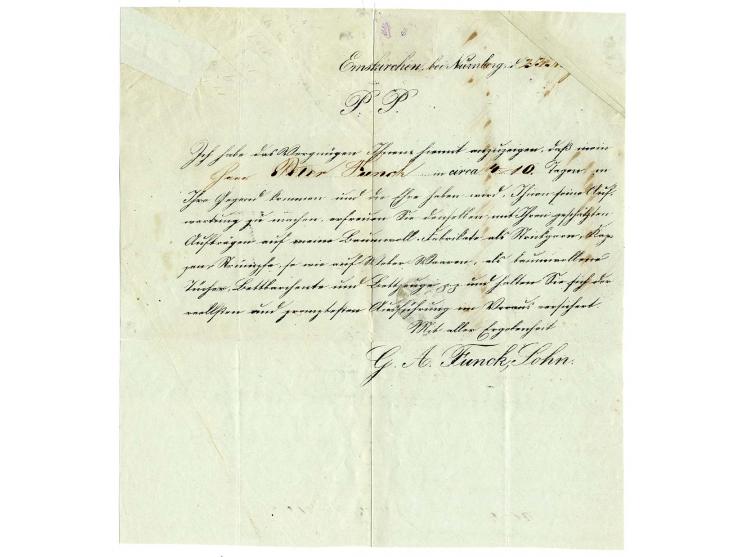 Emskirchen bei Nürnberg, d.
P. P.
Ich habe das Vergnügen Ihnen hiemit anzuzeigen, daß mein
Herr Funck in circa 10 Tagen in
Ihre Gegend kommen und die Ehre haben wird, Ihnen seine Auf-
wartung zu machen, erfreuen Sie denselben mit Ihren geschätzten
Aufträgen auf meine Baumwoll-Fabrikate als Strickgarn, Kap-
pen, Strümpfe, so wie auf Weber Waaren, als baumwollene
Tücher, Bettbarchente und Bettzeuge und halten Sie sich der
reellsten und promptesten Ausführung im Voraus versichert.
Mit aller Ergebenheit
G. A. Funck, Sohn.